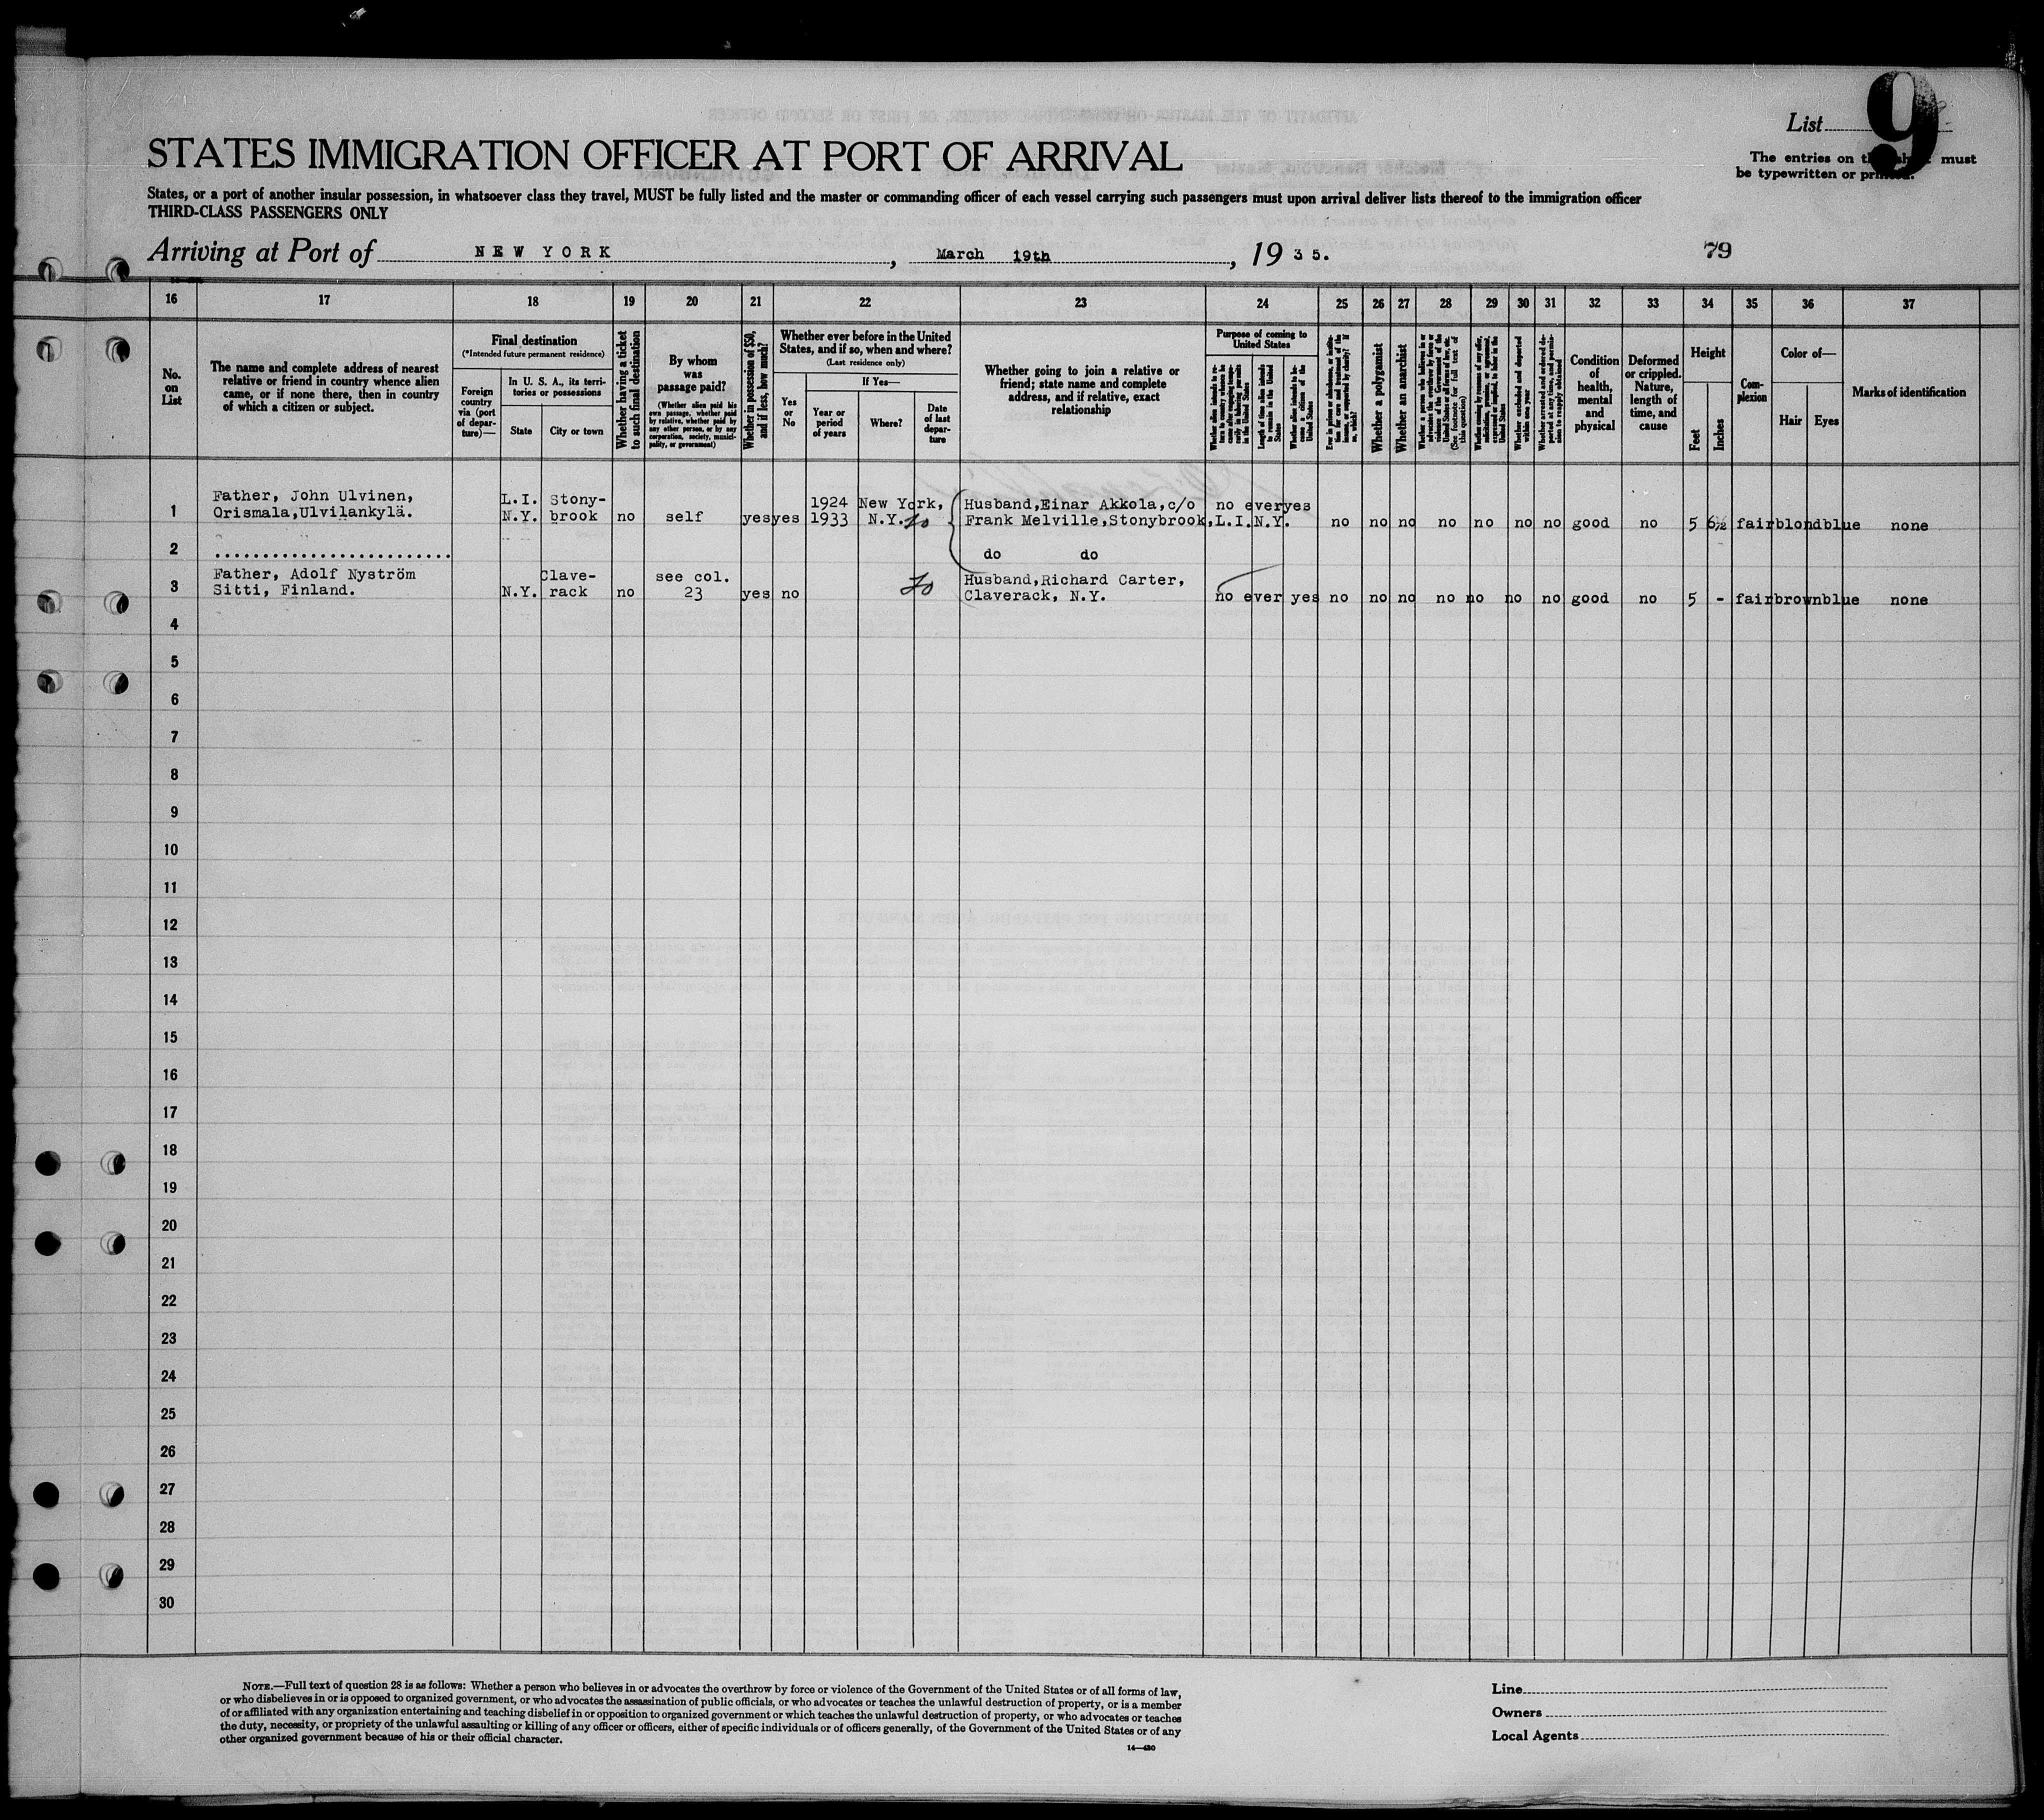 List
9
The entries on this sheet must
be typewritten or printed.
STATES IMMIGRATION OFFICER AT PORT OF ARRIVAL
States, or a port of another insular possession, in whatsoever class they travel, MUST be fully listed and the master or commanding officer of each vessel carrying such passengers must upon arrival deliver lists thereof to the immigration officer
THIRD-CLASS PASSENGERS ONLY
Arriving at Port of NEW YORK, March 19th, 1935. 79
16 17 18 19 20 21 22 23 24 25 26 27 28 29 30 31 32 33 34 35 36 37
No. on List
The name and complete address of nearest
relative or friend in country whence alien
came, or if none there, then in country
of which a citizen or subject.
Final destination
(*Intended future permanent residence)
Foreign country via (port of departure)—
In U. S. A., its territories or possessions
State
City or town
Whether having a ticket to such final destination
By whom was passage paid?
(Whether alien paid his own passage, whether paid by relative, whether paid by any other person, or by any corporation, society, municipality, or government)
Whether in possession of $50, and if less, how much?
Whether ever before in the United States, and if so, when and where?
(Last residence only)
Yes or No
If Yes—
Year or period of years
Where?
Date of last departure
Whether going to join a relative or
friend; state name and complete
address, and if relative, exact
relationship
Purpose of coming to United States
Length of time alien intends to remain in the United States
Whether alien intends to become a citizen of the United States
Whether a polygamist
Whether an anarchist
Whether excluded and deported within one year
Condition of health, mental and physical
Deformed or crippled. Nature, length of time, and cause
Height
Feet
Inches
Complexion
Color of—
Hair
Eyes
Marks of identification
1 Father, John Ulvinen, L.I. Stony- 1924 New York, Husband,Einar Akkola,c/o no ever yes
Orismala,Ulvilankylä. N.Y. brook no self yes yes 1933 N.Y. Frank Melville,Stonybrook,L.I.N.Y. no no no no no no no good no 5 6½ fair blond blue none
2 ........................ do do
3 Father, Adolf Nyström Clave- see col. Husband,Richard Carter,
Sitti, Finland. N.Y. rack no 23 yes no Claverack, N.Y. no ever yes no no no no no no no good no 5 - fair brown blue none
4
5
6
7
8
9
10
11
12
13
14
15
16
17
18
19
20
21
22
23
24
25
26
27
28
29
30
NOTE.—Full text of question 28 is as follows: Whether a person who believes in or advocates the overthrow by force or violence of the Government of the United States or of all forms of law,
or who disbelieves in or is opposed to organized government, or who advocates the assassination of public officials, or who advocates or teaches the unlawful destruction of property, or is a member
of or affiliated with any organization entertaining and teaching disbelief in or opposition to organized government or which teaches the unlawful destruction of property, or who advocates or teaches
the duty, necessity, or propriety of the unlawful assaulting or killing of any officer or officers, either of specific individuals or of officers generally, of the Government of the United States or of any
other organized government because of his or their official character.
14—430
Line
Owners
Local Agents